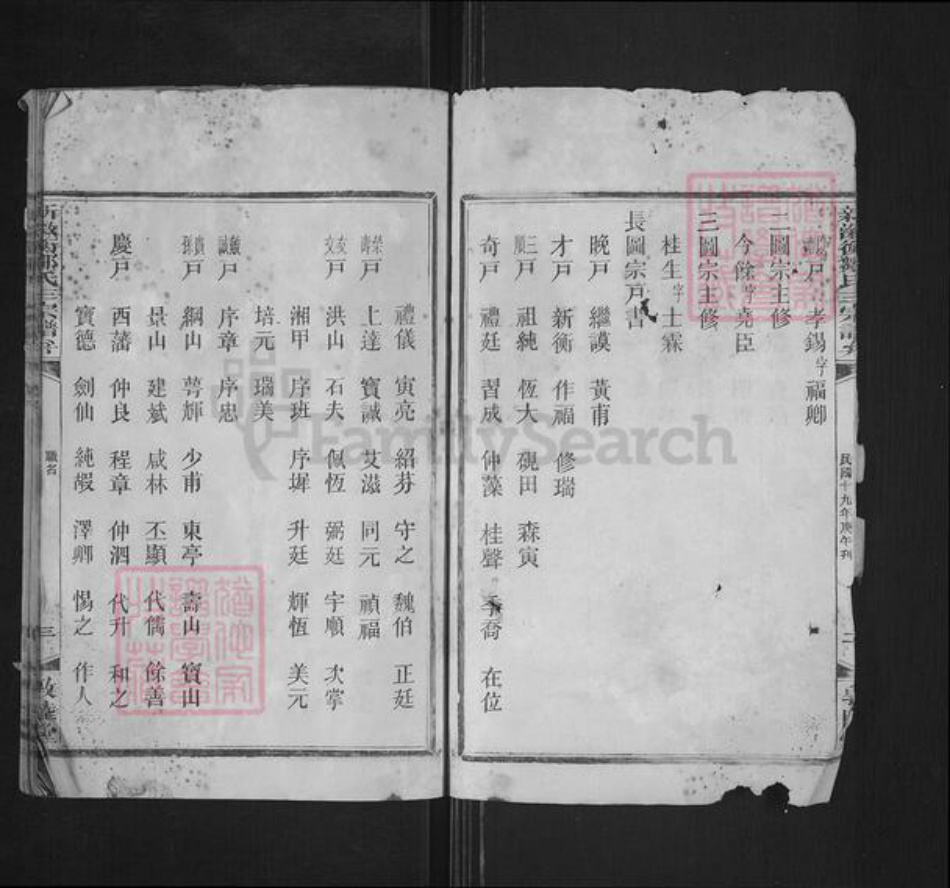 戶 孝錫 字 福卿
二圖宗主修
今餘 字 堯臣
三圖宗主修
桂生 字 士霖
長圖宗戶書
晚戶 繼謨 黃甫
才戶 新衡 作福 修瑞
三順戶 祖純 恆大 硯田 森寅
奇戶 禮廷 習成 仲藻 桂聲 季喬 在位
民國十九年庚午刊
二
禮儀 寅亮 紹芬 守之 魏伯 正廷
榮壽戶 上達 寶誠 艾滋 同元 禎福
友文戶 洪山 石夫 佩恆 弼廷 宇順 次掌
湘甲 序班 序墀 升廷 輝恆 美元
培元 瑞美
戶 序章 序忠
貴孫戶 綱山 萼輝 少甫 東亭 壽山 寶山
景山 建斌 咸林 丕顯 代儒 餘善
慶戶 西藩 仲良 程章 仲泗 代升 和之
寶德 劍仙 純嘏 澤卿 惕之 作人
職名
三
FamilySearch